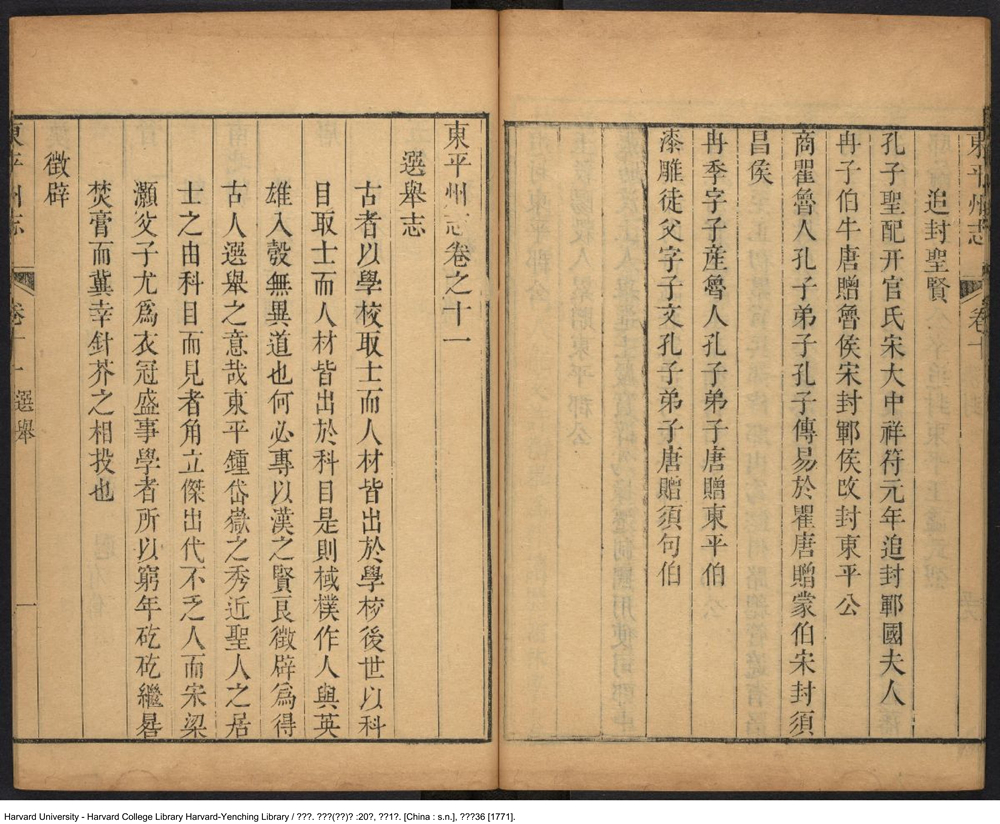 東平州志 卷十
追封聖賢
孔子聖配开官氏宋大中祥符元年追封鄆國夫人
冉子伯牛唐贈魯侯宋封鄆侯攺封東平公
商瞿魯人孔子弟子孔子傳易於瞿唐贈蒙伯宋封須
昌侯
冉季字子產魯人孔子弟子唐贈東平伯
漆雕徒父字子文孔子弟子唐贈須句伯
東平州志卷之十一
選舉志
古者以學校取士而人材皆出於學校後世以科
目取士而人材皆出於科目是則棫樸作人與英
雄入彀無異道也何必專以漢之賢良徵辟爲得
古人選舉之意哉東平鍾岱嶽之秀近聖人之居
士之由科目而見者角立傑出代不乏人而宋梁
灝父子尤爲衣冠盛事學者所以窮年矻矻繼晷
焚膏而冀幸針芥之相投也
徵辟
東平州志 卷十一 選舉 一
Harvard University - Harvard College Library Harvard-Yenching Library / ???. ???(??)? :20?, ??1?. [China : s.n.], ???36 [1771].